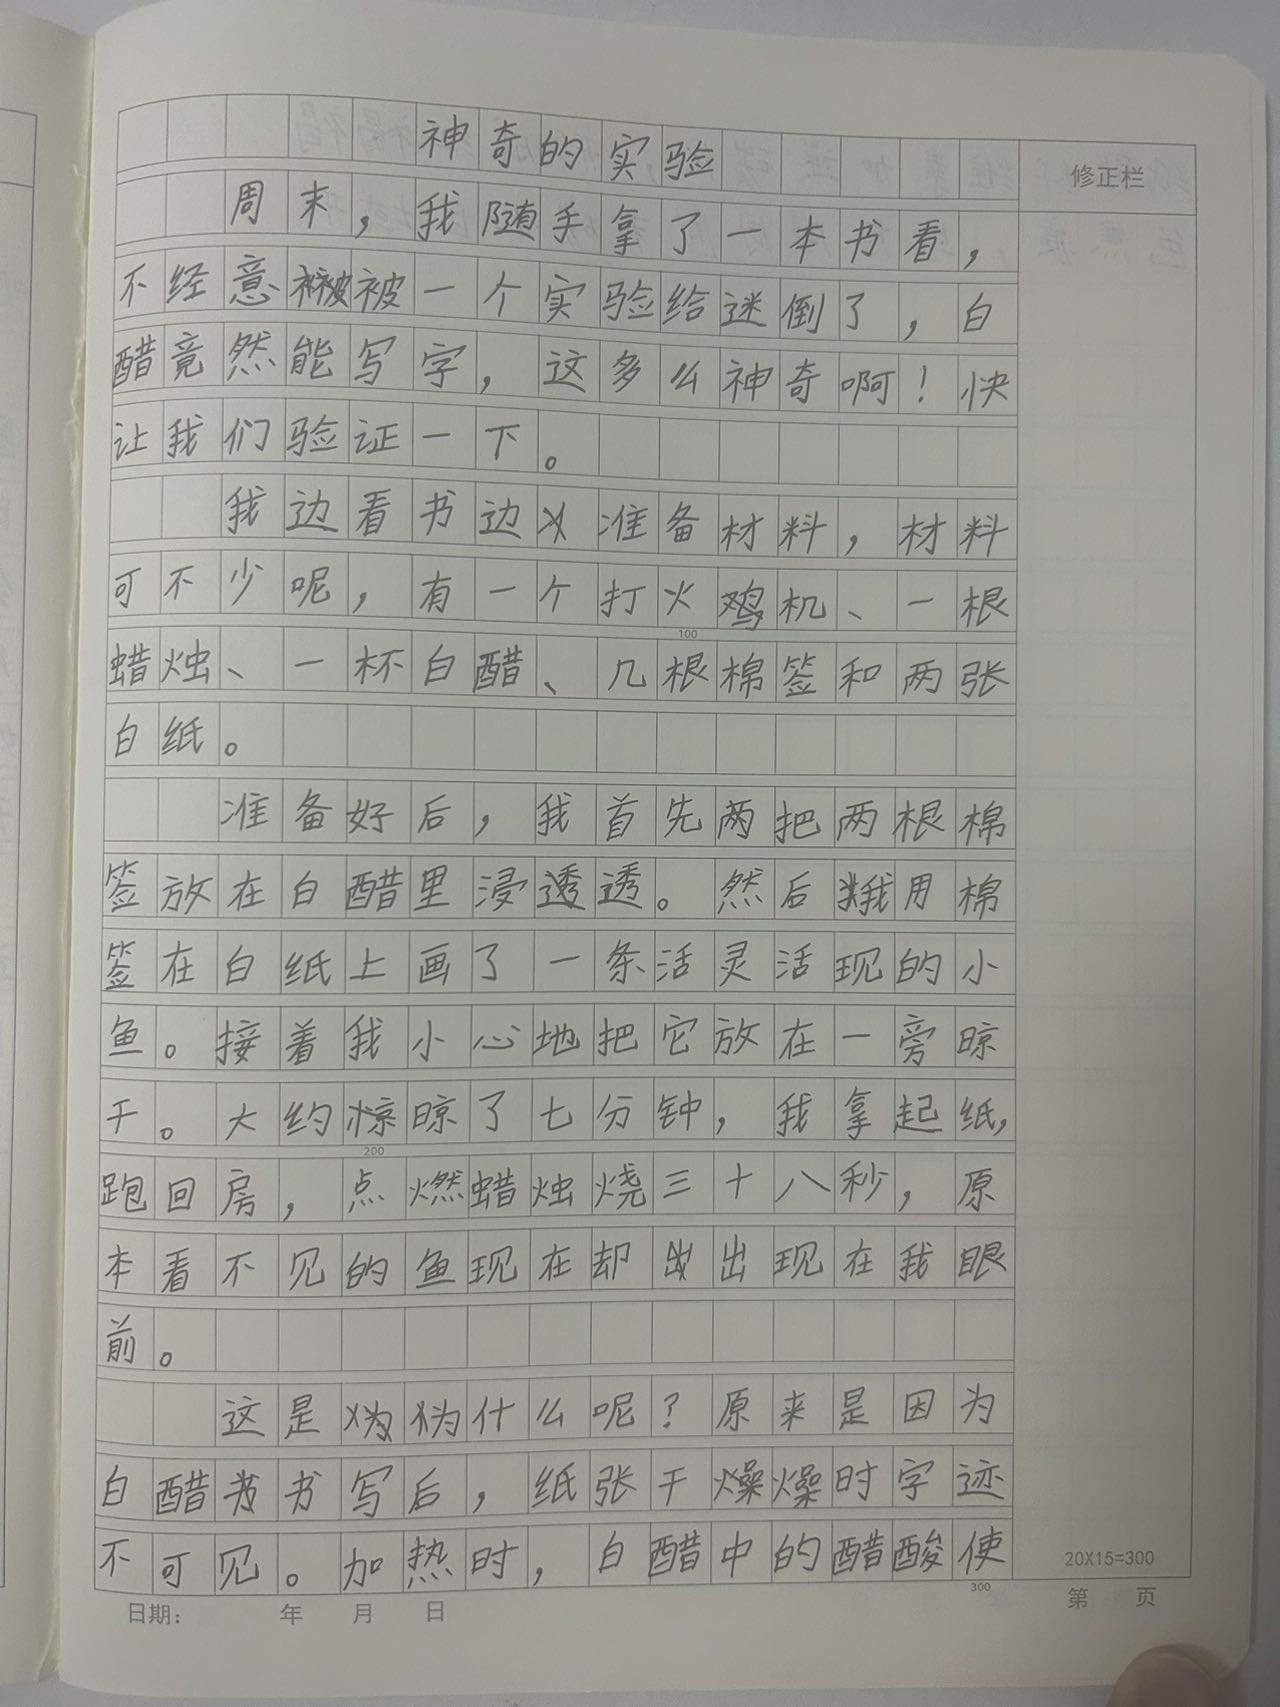 神奇的实验
修正栏
周末，我随手拿了一本书看，
不经意被一个实验给迷倒了，白
醋竟然能写字，这多么神奇啊！快
让我们验证一下。
我边看书边准备材料，材料
可不少呢，有一个打火鸡机、一根
100
蜡烛、一杯白醋、几根棉签和两张
白纸。
准备好后，我首先两把两根棉
签放在白醋里浸透透。然后我用棉
签在白纸上画了一条活灵活现的小
鱼。接着我小心地把它放在一旁晾
干。大约惊晾了七分钟，我拿起纸，
200
跑回房，点燃蜡烛烧三十八秒，原
本看不见的鱼现在却出出现在我眼
前。
这是为什么呢？原来是因为
白醋书书写后，纸张干燥燥时字迹
不可见。加热时，白醋中的醋酸使
20X15=300
300
日期： 年 月 日
第 页